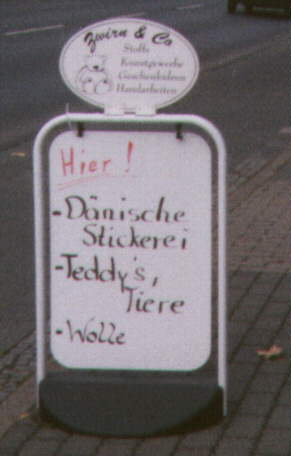 Zwirn & Co
Stoffe
Kunstgewerbe
Geschenkideen
Handarbeiten
Hier!
-Dänische
Stickerei
-Teddy's,
Tiere
-Wolle